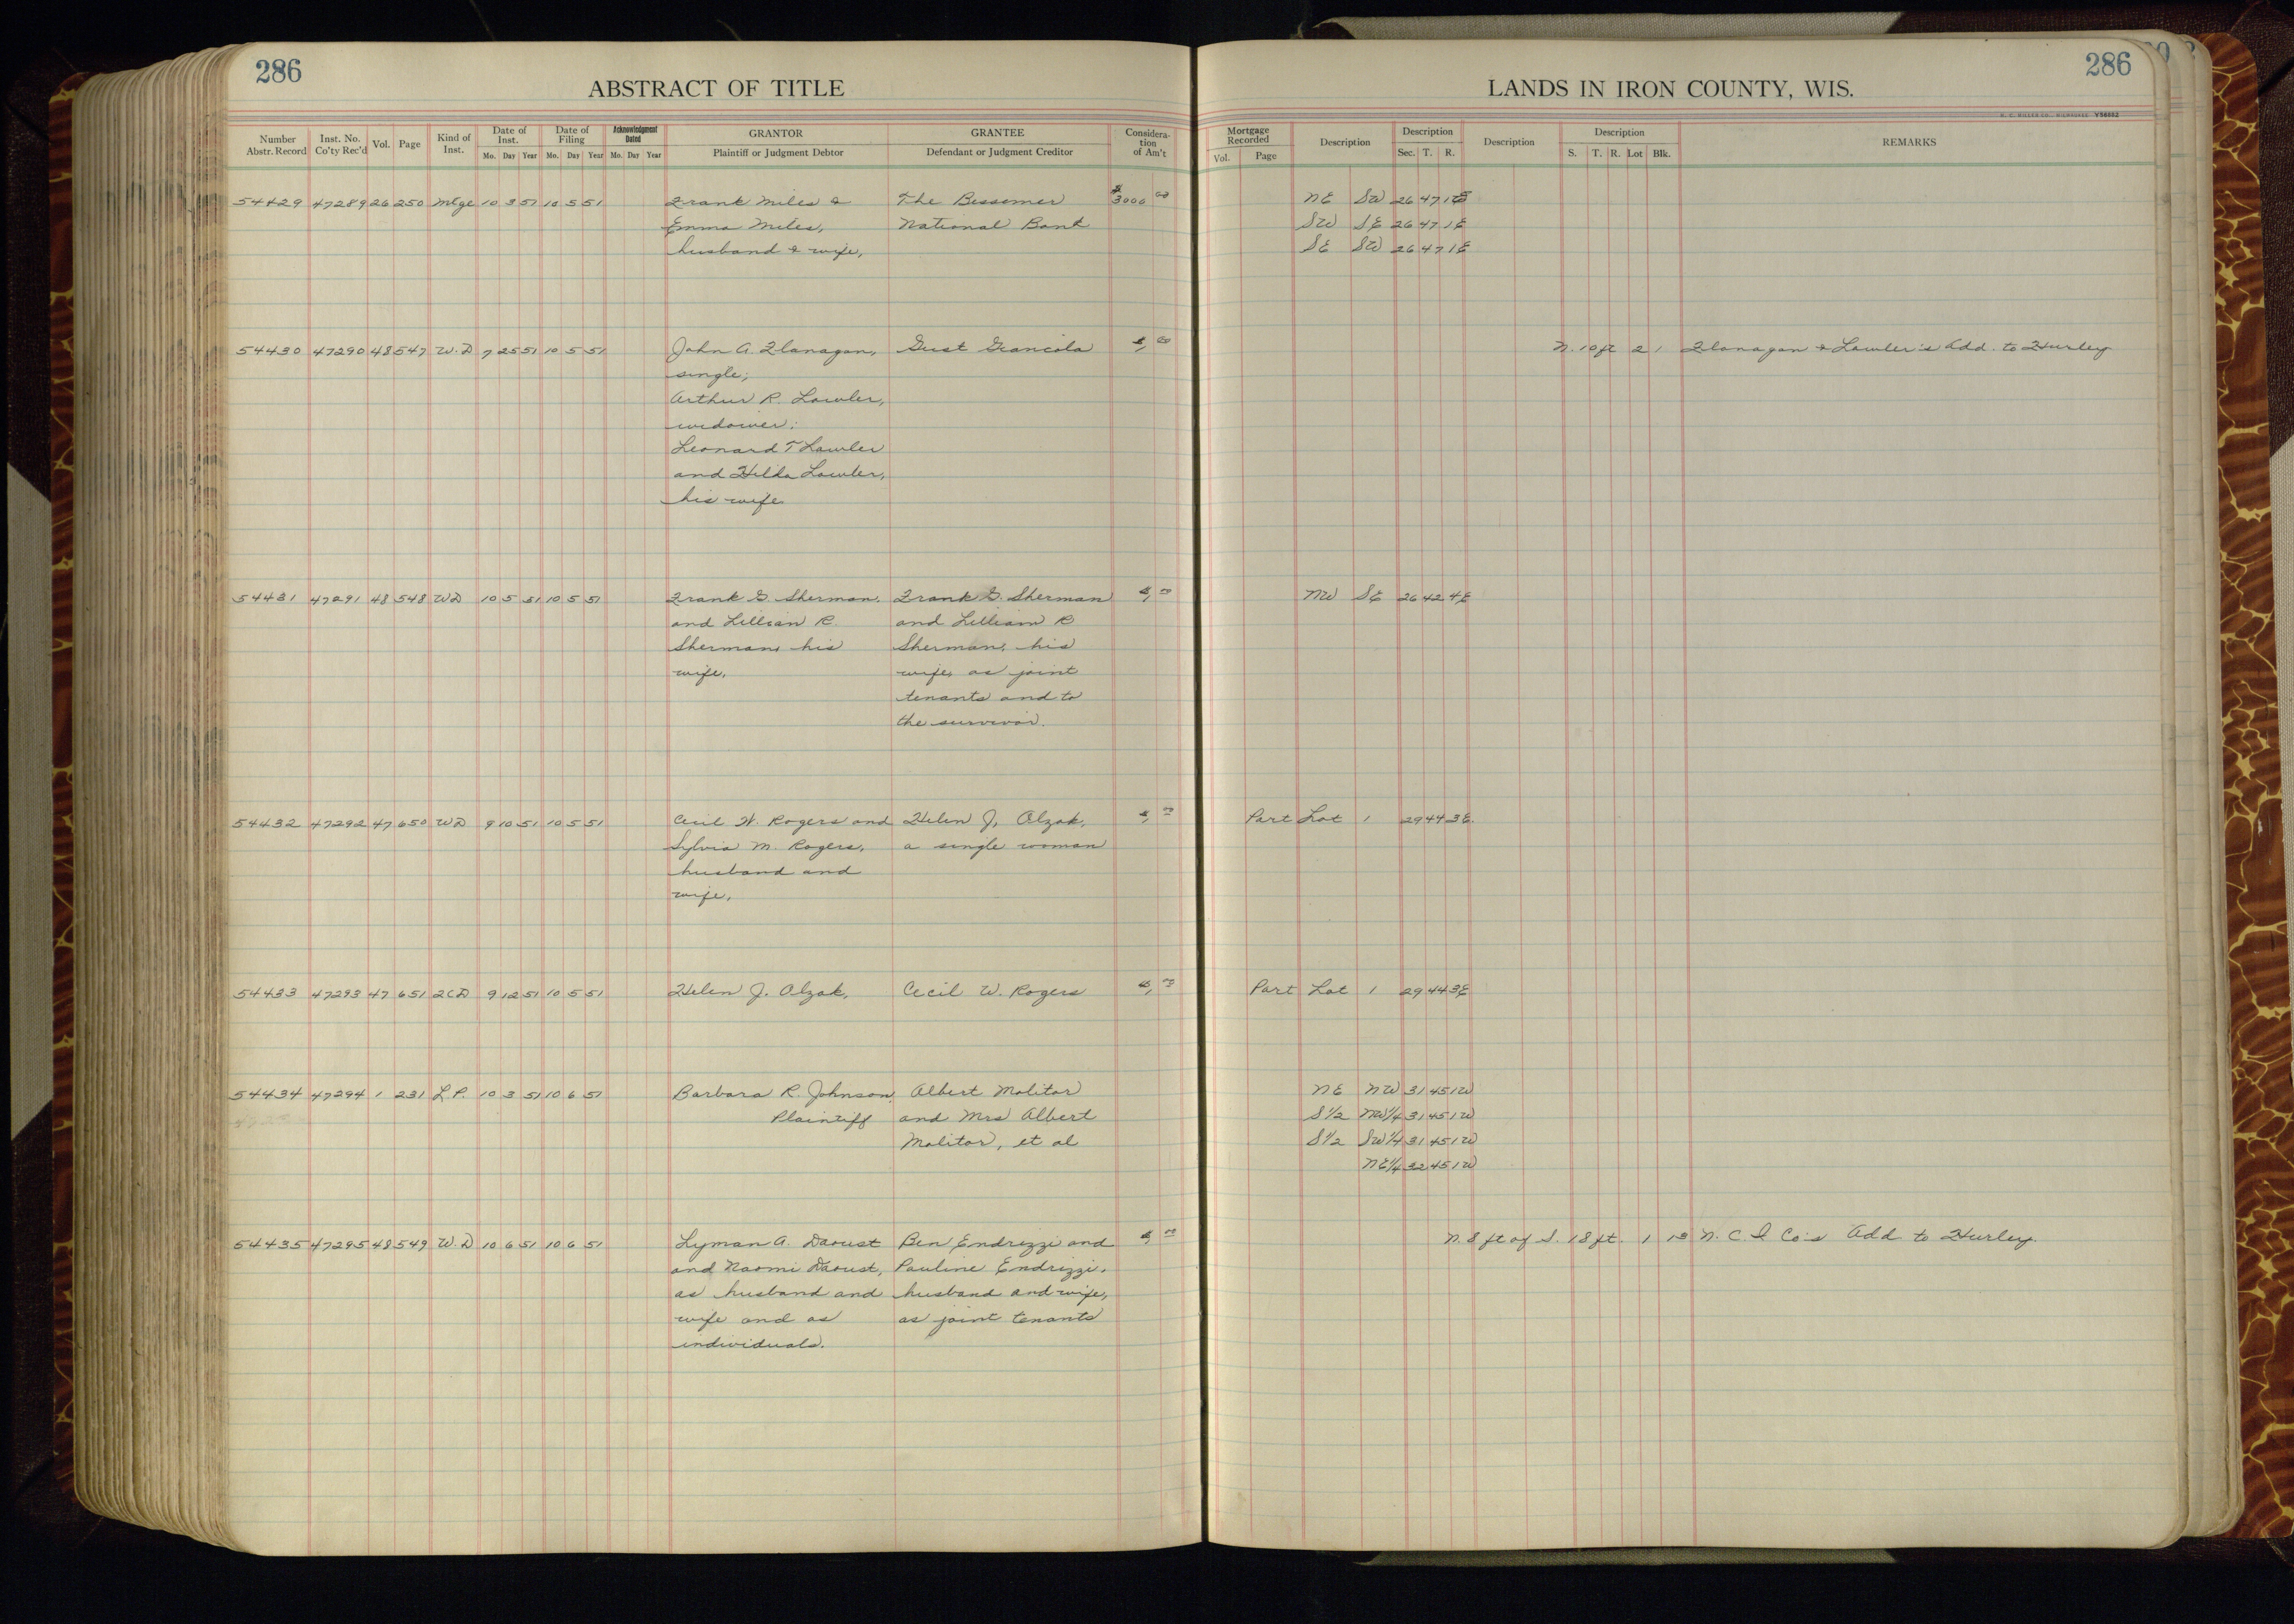 286
ABSTRACT OF TITLE
LANDS IN IRON COUNTY, WIS.
286
Number Abstr. Record Inst. No. Co'ty Rec'd Vol. Page Kind of Inst. Date of Inst. Mo. Day Year Date of Filing Mo. Day Year Acknowledgment Dated Mo. Day Year GRANTOR Plaintiff or Judgment Debtor GRANTEE Defendant or Judgment Creditor Considera-tion of Am't Mortgage Recorded Vol. Page Description Description Sec. T. R. Description Description S. T. R. Lot Blk. REMARKS
54429 47289 26 250 Mtge 10 3 51 10 5 51 Frank Miles & The Bessemer $3000 00 NE SW 26 47 1E
Emma Miles, National Bank SW SE 26 47 1E
husband & wife, SE SW 26 47 1E
54430 47290 48 547 W.D 7 25 51 10 5 51 John A. Flanagan, Gust Giancola $1 00 N. 10 ft 2 1 Flanagan & Lawler's Add. to Hurley
single;
Arthur R. Lawler,
widower;
Leonard T Lawler
and Hilda Lawler,
his wife
54431 47291 48 548 WD 10 5 51 10 5 51 Frank G Sherman, Frank G. Sherman $1 00 NW SE 26 42 4E
and Lillian R. and Lillian R
Sherman, his Sherman, his
wife, wife, as joint
tenants and to
the survivor.
54432 47292 47 650 WD 9 10 51 10 5 51 Cecil W. Rogers and Helen J. Alzak, $1 00 Part Lot 1 29 44 3E.
Sylvia M. Rogers, a single woman
husband and
wife,
54433 47293 47 651 2CD 9 12 51 10 5 51 Helen J. Alzak, Cecil W. Rogers $1 00 Part Lot 1 29 44 3E
54434 47294 1 231 L P. 10 3 51 10 6 51 Barbara R. Johnson, Albert Molitor NE NW 31 45 1W
Plaintiff and Mrs Albert S1/2 NW1/4 31 45 1W
Molitor, et al S1/2 SW1/4 31 45 1W
NE1/4 32 45 1W
54435 47295 48 549 W.D 10 6 51 10 6 51 Lyman A. Daoust Ben Endrizzi and $1 00 N. 8 ft of S. 18 ft. 1 13 N. C. I Co's Add to Hurley.
and Naomi Daoust, Pauline Endrizzi,
as husband and husband and wife,
wife and as as joint tenants
individuals.